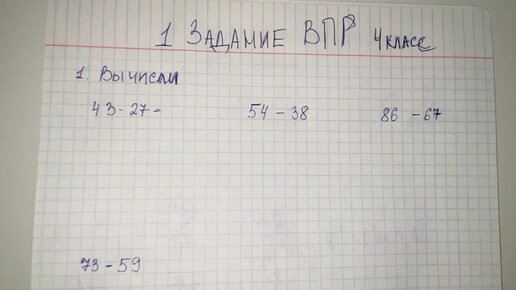 1 ЗАДАНИЕ ВПР 4 КЛАСС
1. Вычисли
43-27= 54-38 86-67
73-59